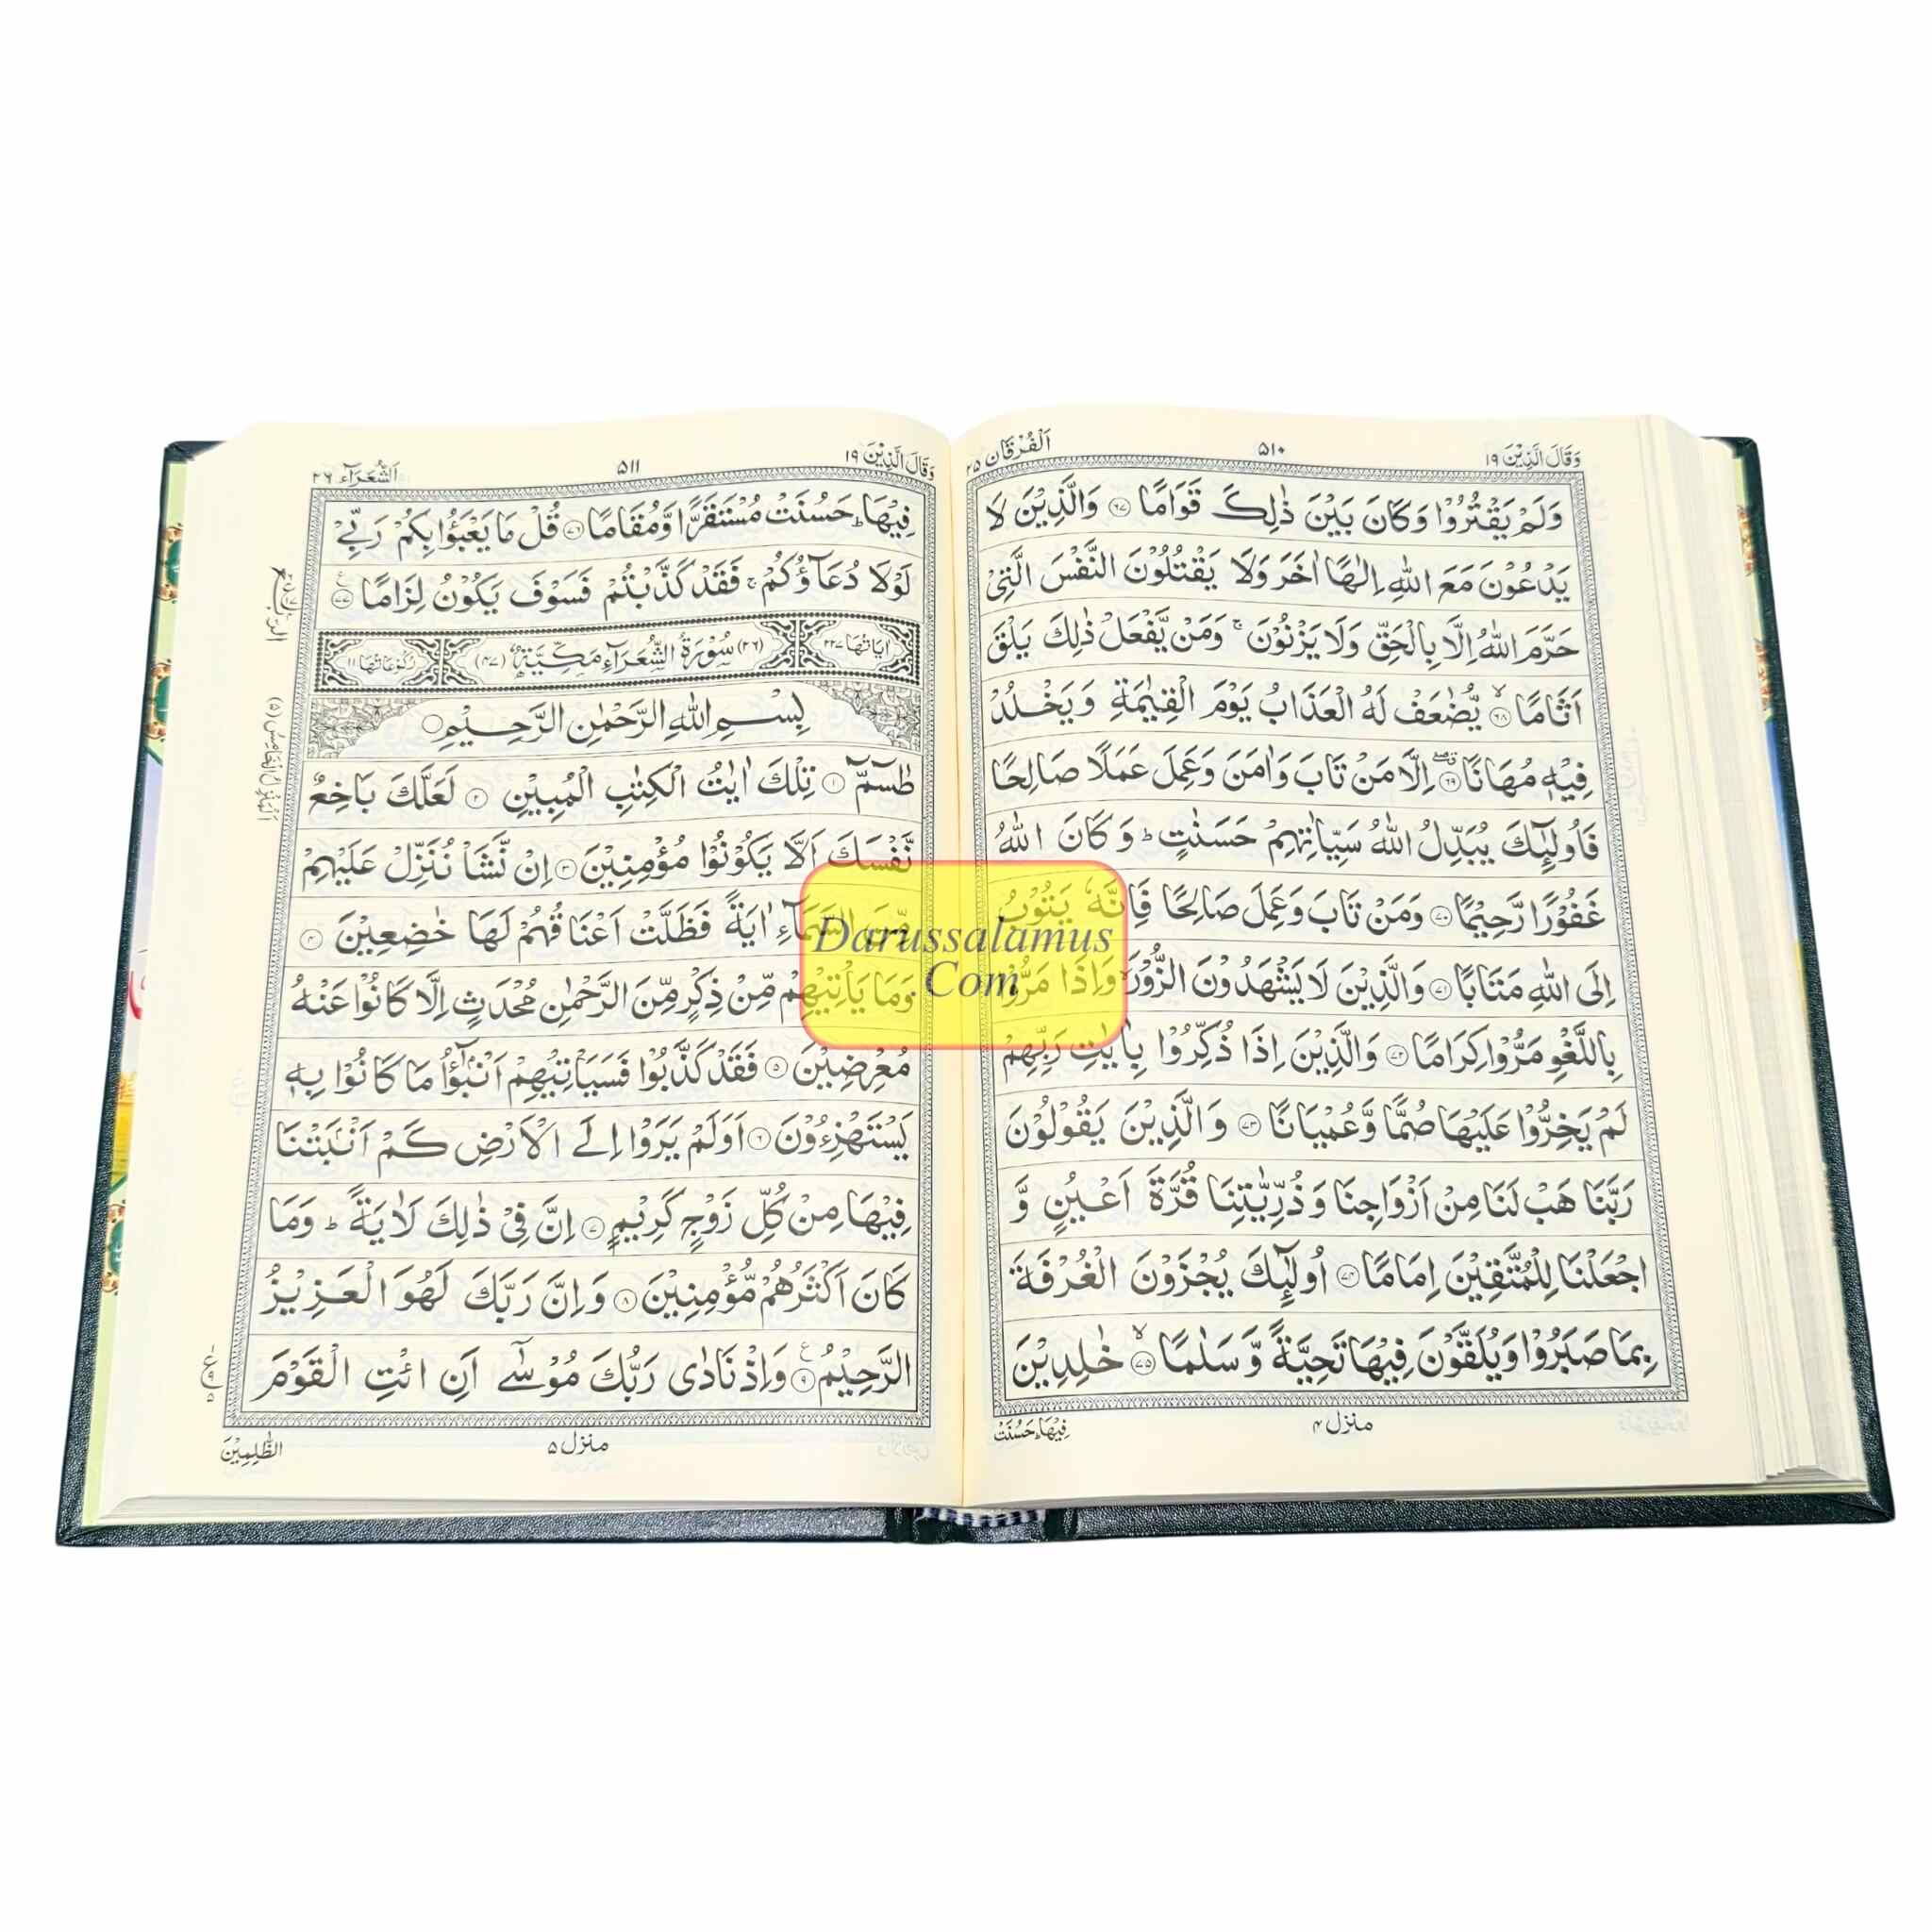 وَقَالَ الَّذِيْنَ ١٩
٥١٠
اَلْفُرْقَان ٢٥
وَلَمْ يَقْتُرُوْا وَكَانَ بَيْنَ ذٰلِكَ قَوَامًا ٦٧ وَالَّذِيْنَ لَا
يَدْعُوْنَ مَعَ اللّٰهِ اِلٰهًا اٰخَرَ وَلَا يَقْتُلُوْنَ النَّفْسَ الَّتِيْ
حَرَّمَ اللّٰهُ اِلَّا بِالْحَقِّ وَلَا يَزْنُوْنَ ۚ وَمَنْ يَّفْعَلْ ذٰلِكَ يَلْقَ
اَثَامًا ٦٨ يُّضٰعَفْ لَهُ الْعَذَابُ يَوْمَ الْقِيٰمَةِ وَيَخْلُدْ
فِيْهٖ مُهَانًا ٦٩ اِلَّا مَنْ تَابَ وَاٰمَنَ وَعَمِلَ عَمَلًا صَالِحًا
فَاُولٰٓئِكَ يُبَدِّلُ اللّٰهُ سَيِّاٰتِهِمْ حَسَنٰتٍ ؕ وَكَانَ اللّٰهُ
غَفُوْرًا رَّحِيْمًا ٧٠ وَمَنْ تَابَ وَعَمِلَ صَالِحًا فَاِنَّهٗ يَتُوْبُ
اِلَى اللّٰهِ مَتَابًا ٧١ وَالَّذِيْنَ لَا يَشْهَدُوْنَ الزُّوْرَ وَاِذَا مَرُّوْا
بِاللَّغْوِ مَرُّوْا كِرَامًا ٧٢ وَالَّذِيْنَ اِذَا ذُكِّرُوْا بِاٰيٰتِ رَبِّهِمْ
لَمْ يَخِرُّوْا عَلَيْهَا صُمًّا وَّعُمْيَانًا ٧٣ وَالَّذِيْنَ يَقُوْلُوْنَ
رَبَّنَا هَبْ لَنَا مِنْ اَزْوَاجِنَا وَذُرِّيّٰتِنَا قُرَّةَ اَعْيُنٍ وَّ
اجْعَلْنَا لِلْمُتَّقِيْنَ اِمَامًا ٧٤ اُولٰٓئِكَ يُجْزَوْنَ الْغُرْفَةَ
بِمَا صَبَرُوْا وَيُلَقَّوْنَ فِيْهَا تَحِيَّةً وَّسَلٰمًا ٧٥ خٰلِدِيْنَ
منزل ٤
فِيْهَا حَسُنَتْ
وَقَالَ الَّذِيْنَ ١٩
٥١١
اَلشُّعَرَآء ٢٦
فِيْهَا ؕ حَسُنَتْ مُسْتَقَرًّا وَّمُقَامًا ٧٦ قُلْ مَا يَعْبَؤُا بِكُمْ رَبِّيْ
لَوْلَا دُعَآؤُكُمْ ۚ فَقَدْ كَذَّبْتُمْ فَسَوْفَ يَكُوْنُ لِزَامًا ٧٧
اٰيَاتُهَا ٢٢٧
(٢٦) سُوْرَةُ الشُّعَرَآءِ مَكِّيَّةٌ (٤٧)
رُكُوْعَاتُهَا ١١
بِسْمِ اللّٰهِ الرَّحْمٰنِ الرَّحِيْمِ
طٰسٓمّٓ ١ تِلْكَ اٰيٰتُ الْكِتٰبِ الْمُبِيْنِ ٢ لَعَلَّكَ بَاخِعٌ
نَّفْسَكَ اَلَّا يَكُوْنُوْا مُؤْمِنِيْنَ ٣ اِنْ نَّشَاْ نُنَزِّلْ عَلَيْهِمْ
مِّنَ السَّمَآءِ اٰيَةً فَظَلَّتْ اَعْنَاقُهُمْ لَهَا خٰضِعِيْنَ ٤
وَمَا يَاْتِيْهِمْ مِّنْ ذِكْرٍ مِّنَ الرَّحْمٰنِ مُحْدَثٍ اِلَّا كَانُوْا عَنْهُ
مُعْرِضِيْنَ ٥ فَقَدْ كَذَّبُوْا فَسَيَاْتِيْهِمْ اَنْۢبٰٓؤُا مَا كَانُوْا بِهٖ
يَسْتَهْزِءُوْنَ ٦ اَوَلَمْ يَرَوْا اِلَى الْاَرْضِ كَمْ اَنْۢبَتْنَا
فِيْهَا مِنْ كُلِّ زَوْجٍ كَرِيْمٍ ٧ اِنَّ فِيْ ذٰلِكَ لَاٰيَةً ؕ وَمَا
كَانَ اَكْثَرُهُمْ مُّؤْمِنِيْنَ ٨ وَاِنَّ رَبَّكَ لَهُوَ الْعَزِيْزُ
الرَّحِيْمُ ٩ وَاِذْ نَادٰى رَبُّكَ مُوْسٰٓى اَنِ ائْتِ الْقَوْمَ
منزل ٥
الظّٰلِمِيْنَ
اَلْمَنْزِلُ الْخَامِسُ (٥)
Darussalamus
Com